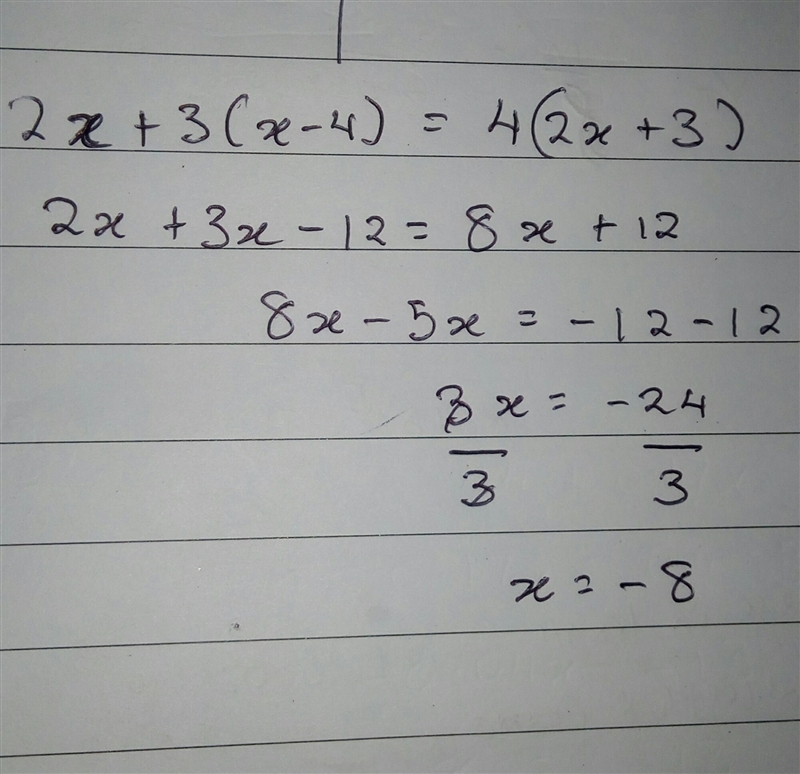 2x + 3(x-4) = 4(2x + 3)
2x + 3x - 12 = 8x + 12
8x - 5x = -12 - 12
3x = -24
3 3
x = -8